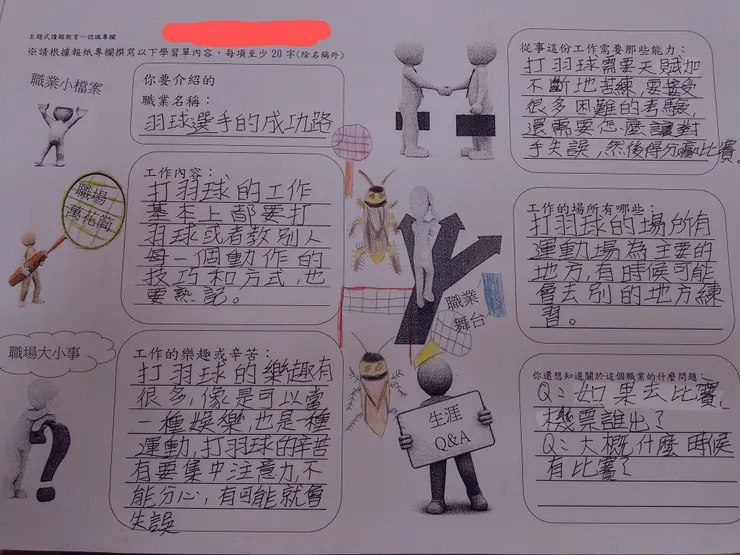 主題式讀報教育—認識專欄
※請根據報紙專欄撰寫以下學習單內容，每項至少20字(除名稱外)
職業小檔案
你要介紹的
職業名稱：
羽球選手的成功路
職場
萬花筒
工作內容：
打羽球的工作
基本上都要打
羽球或者教別人
每一個動作的
技巧和方式，也
要熟記。
職場大小事
工作的樂趣或辛苦：
打羽球的樂趣有
很多，像是可以當
一種娛樂，也是一種
運動，打羽球的辛苦
有要集中注意力，不
能分心，有可能就會
失誤
從事這份工作需要那些能力：
打羽球需要天賦加
不斷地苦練，要接受
很多困難的考驗，
還需要怎麼讓對
手失誤，然後得分贏比賽。
職業
舞台
工作的場所有哪些：
打羽球的場所有
運動場為主要的
地方，有時候可能
會去別的地方練
習。
生涯
Q&A
你還想知道關於這個職業的什麼問題：
Q：如果去比賽，
機票誰出？
Q：大概什麼時候
有比賽？